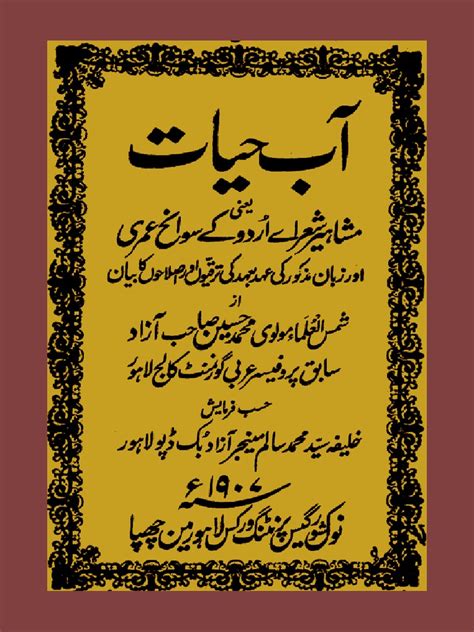 آب حیات
یعنی
مشاہیر شعراے اُردو کے سوانح عمری
اور زبان مذکور کی عہد بعہد کی ترقیوں اور اصلاحوں کا بیان
از
شمس العلماء مولوی محمد حسین صاحب آزاد
سابق پروفیسر عربی گورنمنٹ کالج لاہور
حسب فرمایش
خلیفہ سیّد محمد سالم منیجر آزاد بُک ڈپو لاہور
سنہ ۱۹۰۷ء
نولکشور گیس پرنٹنگ ورکس لاہور مین چھپا